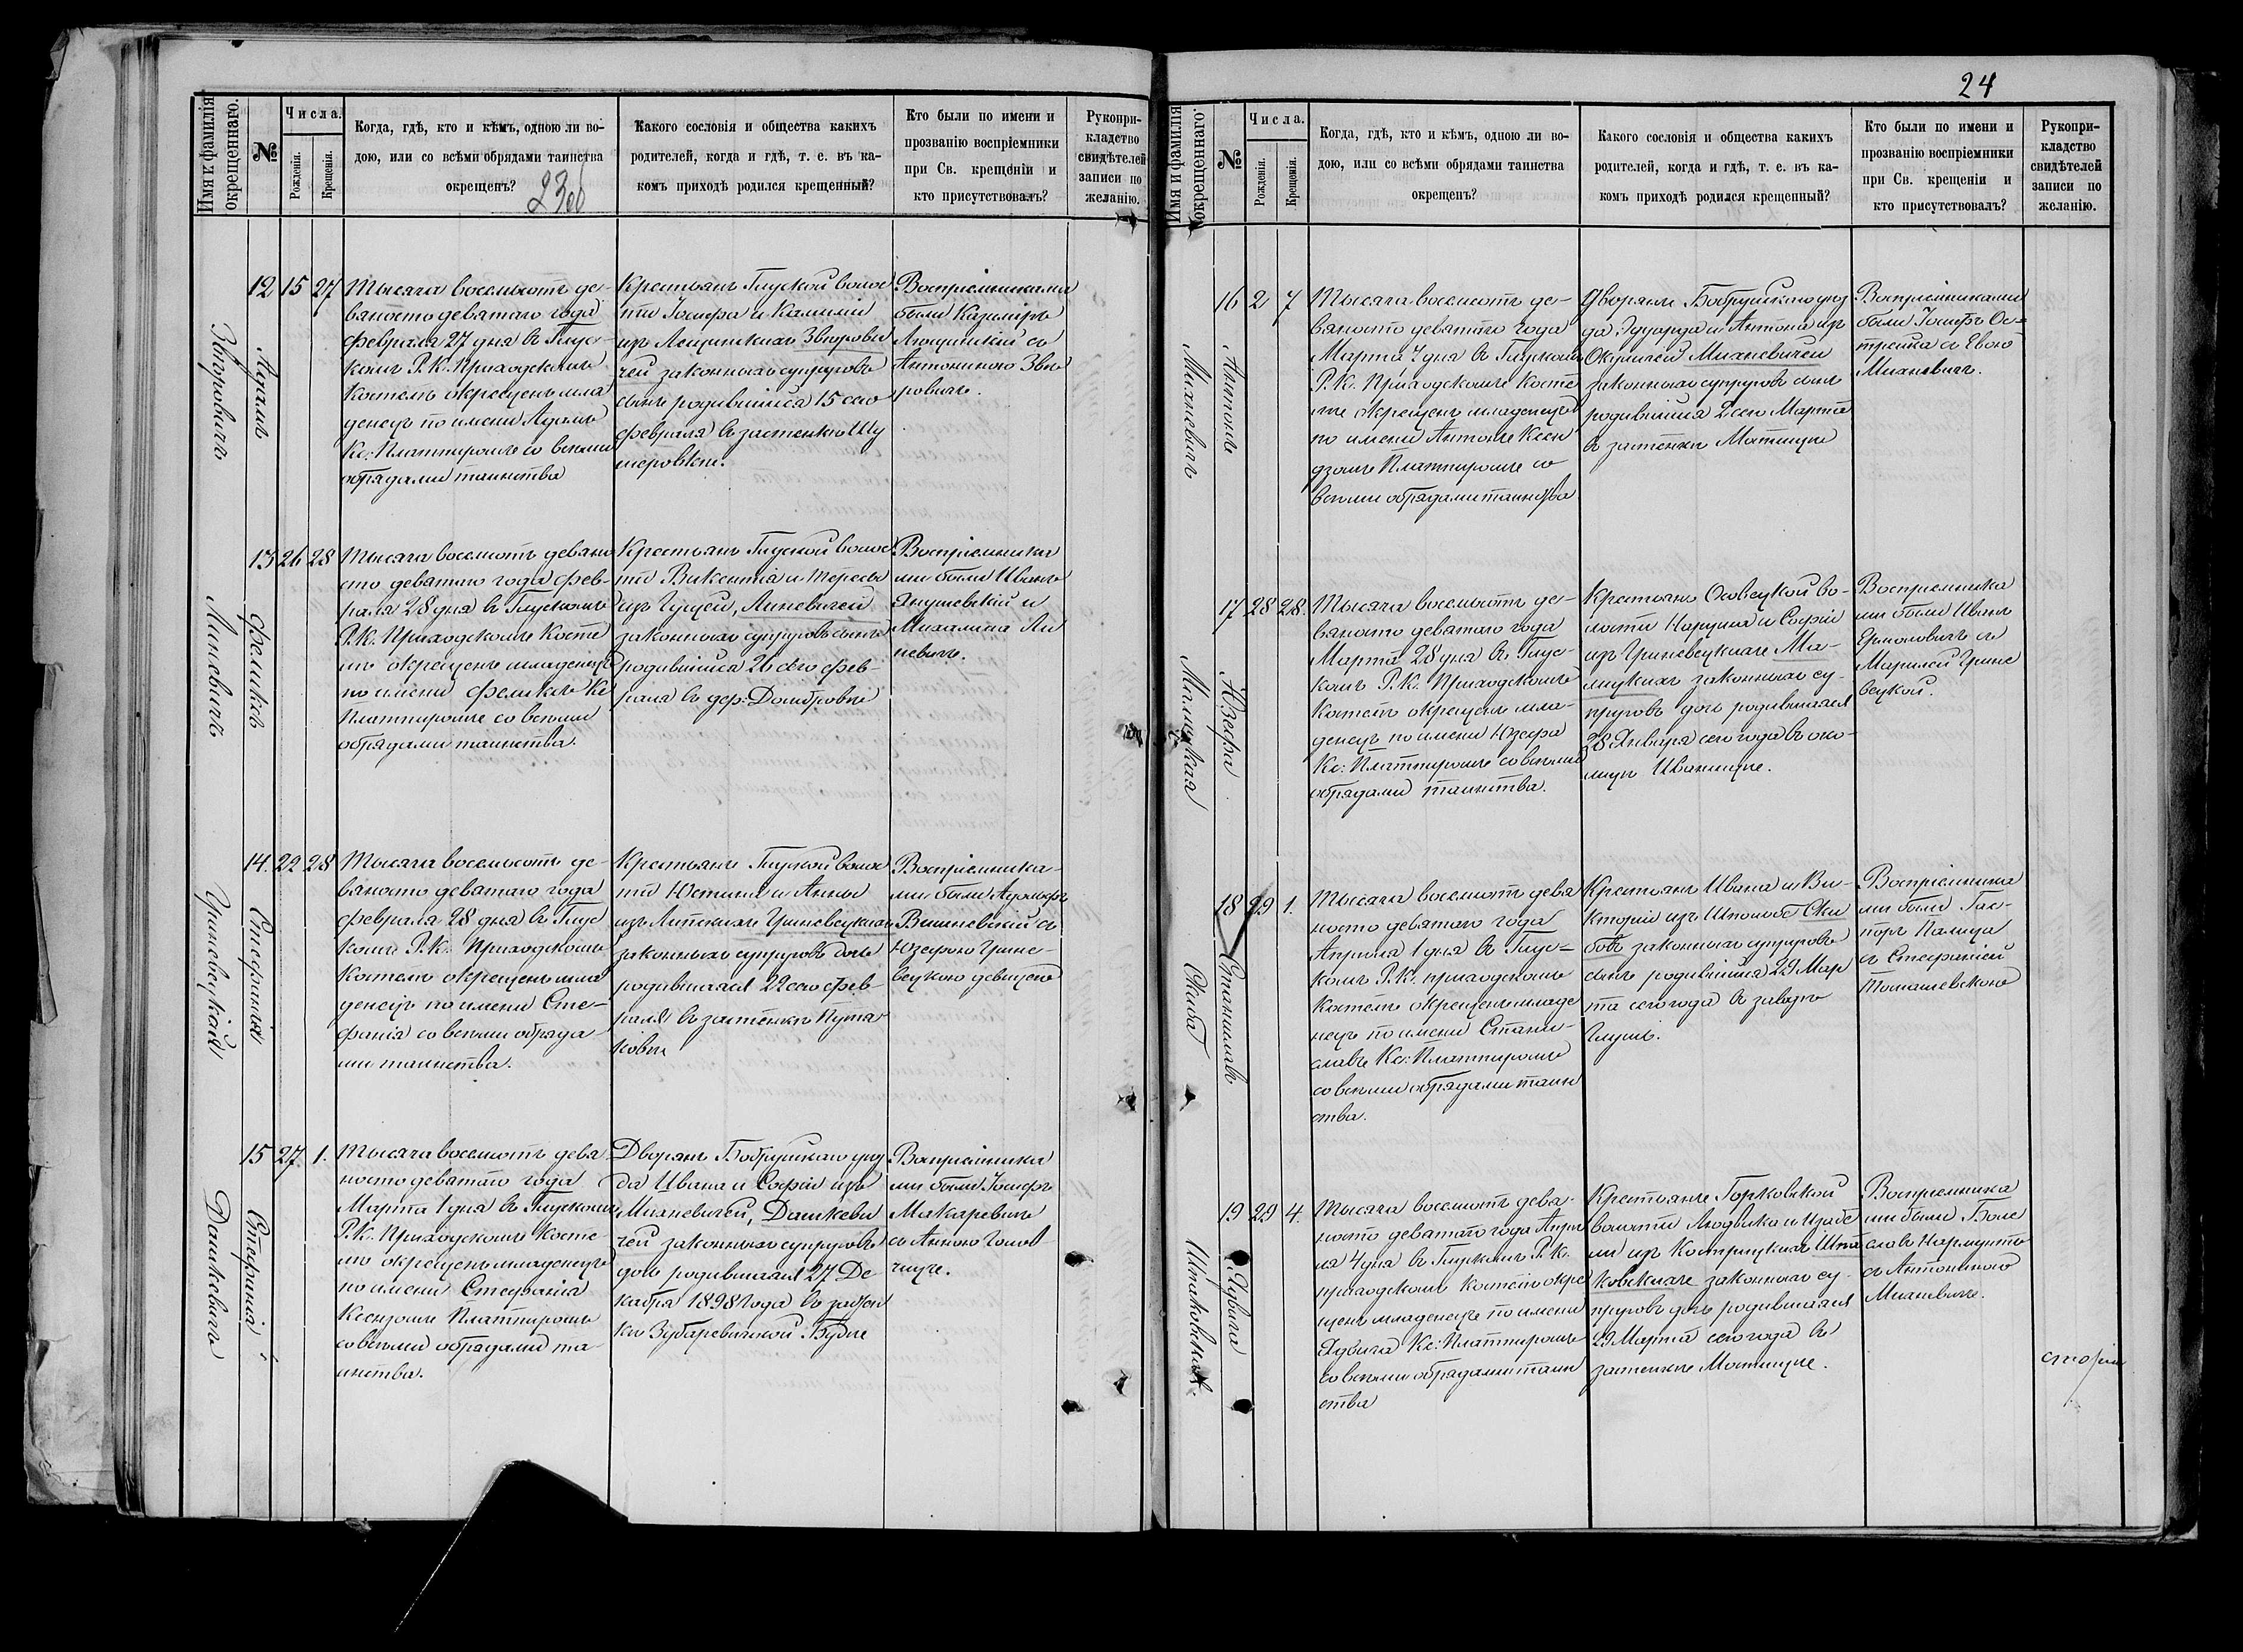 24
Имя и фамилія
окрещеннаго.
№
Числа.
Рожденія.
Крещенія.
Когда, гдѣ, кто и кѣмъ, одною ли во-
дою, или со всѣми обрядами таинства
окрещенъ?
23об
Какого сословія и общества какихъ
родителей, когда и гдѣ, т. е. въ ка-
комъ приходѣ родился крещенный?
Кто были по имени и
прозванію воспріемники
при Св. крещеніи и
кто присутствовалъ?
Рукопри-
кладство
свидѣтелей
записи по
желанію.
12 15 27
Тысяча восемьсотъ де-
вяносто девятаго года
февраля 27 дня въ Глус-
комъ Р. К. Приходскомъ
Костелѣ окрещенъ мла
денецъ по имени Адамъ
Кс: Платпиромъ со всѣми
обрядами таинства
Крестьянъ Глуской волос
ти Іосифа и Камиліи
изъ Звѣрови
чей законныхъ супруговъ
сынъ родившійся 15 сего
февраля въ застенкѣ Шу
Воспріемниками
были Казиміръ
съ
Антониною Звѣ
ровичъ.
Адамъ
Звѣровичъ
13 26 28
Тысяча восемьсотъ девяно
сто девятаго года фев-
раля 28 дня въ Глускомъ
Р. К. Приходскомъ Косте
лѣ окрещенъ младенецъ
по имени Феликсъ Кс
Платпиромъ со всѣми
обрядами таинства.
Крестьянъ Глуской волос
ти Викентія и Тересы
изъ Гуцей, Линевичей
законныхъ супруговъ сынъ
родившійся 26 сего фев-
раля въ дер: Домбровѣ
Воспріемника
ми были Иванъ
Янушевскій и
Михалина Ли
невичъ.
Феликсъ
Линевичъ
14. 22 28
Тысяча восемьсотъ де-
вяносто девятаго года
февраля 28 дня въ Глус
комъ Р. К. Приходскомъ
Костелѣ окрещенъ мла
денецъ по имени Сте-
фанія со всѣми обряда-
ми таинства.
Крестьянъ Глуской волос
ти Юстина и Анны
изъ Липскихъ Гриневецкихъ
законныхъ супруговъ дочь
родившаяся 22 сего фев-
раля въ застенкѣ Пута
ковѣ
Воспріемника-
ми были Адольфъ
Вишневскій съ
Юзефою Грине-
вецкою девицею
Стефанія
Гриневецкая
15 27. 1.
Тысяча восемьсотъ девя
носто девятаго года
Марта 1 дня въ Глускомъ
Р. К. Приходскомъ Косте-
лѣ окрещенъ младенецъ
по имени Стефанія
Ксендзомъ Платпиромъ
со всѣми обрядами та-
инства.
Дворянъ Бобруйскаго уѣз
да Ивана и Софіи изъ
Михневичей, Дашкеви
чей законныхъ супруговъ
дочь родившаяся 27 Де
кабря 1898 года въ застен
кѣ Зубаревичской Будѣ
Воспріемника
ми были Іосифъ
Макаревичъ
съ Анною Голов
чице.
Стефанія
Дашкевичъ
Имя и фамилія
окрещеннаго.
№
Числа.
Рожденія.
Крещенія.
Когда, гдѣ, кто и кѣмъ, одною ли во-
дою, или со всѣми обрядами таинства
окрещенъ?
Какого сословія и общества каких
родителей, когда и гдѣ, т. е. въ ка-
комъ приходѣ родился крещенный?
Кто были по имени и
прозванію воспріемники
при Св. крещеніи и
кто присутствовалъ?
Рукопри-
кладство
свидѣтелей
записи по
желанію.
16 2 7
Тысяча восемьсотъ де-
вяносто девятаго года
Марта 7 дня въ Глускомъ
Р. К. Приходскомъ Косте
лѣ окрещенъ младенецъ
по имени Антонъ Ксен
дзомъ Платпиромъ со
всѣми обрядами таинства
Дворянъ Бобруйскаго уѣз
да Эдуарда и Антонины изъ
Окуличей Михневичей
законныхъ супруговъ сынъ
родившійся 2 сего Марта
въ застенкѣ Матище
Воспріемниками
были Іосифъ Ос-
трейка съ Евою
Михневичъ.
Антонъ
Михневичъ
17 28 28.
Тысяча восемьсотъ де-
вяносто девятаго года
Марта 28 дня въ Глус-
комъ Р. К. Приходскомъ
Костелѣ окрещенъ мла-
денецъ по имени Юзефа
Кс: Платпиромъ со всѣми
обрядами таинства.
Крестьянъ Осовецкой во-
лости и Софіи
изъ Гриневецкихъ Ма-
законныхъ су-
пруговъ дочь родившаяся
28 Января сего года въ око-
лицѣ Иванище.
Воспріемника
ми были Иванъ
Ермоловичъ съ
Марилей Грине
вецкой.
Юзефа
18 29 1.
Тысяча восемьсотъ девя
носто девятаго года
Апрѣля 1 дня въ Глус-
комъ Р. К. приходскомъ
Костелѣ окрещенъ младе
нецъ по имени Стани-
славъ Кс: Платпиромъ
со всѣми обрядами таин
ства.
Крестьянъ Ивана и Ви-
кторіи изъ Ски
бовъ законныхъ супруговъ
сынъ родившійся 29 Мар
та сего года въ заводѣ
Глуши.
Воспріемника
ми были Гас-
поръ
съ Стефаніей
Томашевскою
Станиславъ
Скиба
19 29 4.
Тысяча восемьсотъ девя-
носто девятаго года Апрѣ
ля 4 дня въ Глускомъ Р. К.
приходскомъ костелѣ окре
щенъ младенецъ по имени
Ядвига Кс: Платпиромъ
со всѣми обрядами таин
ства
Крестьянъ Горковской
волости Людвика и Изабе
ли изъ Костриукихъ Шпа
ковскихъ законныхъ су-
пруговъ дочь родившаяся
29 Марта сего года въ
застенкѣ Матище.
Воспріемника
ми были Боле
славъ Нармунтъ
съ Антониною
Михневичъ.
Ядвига
Шпаковская.